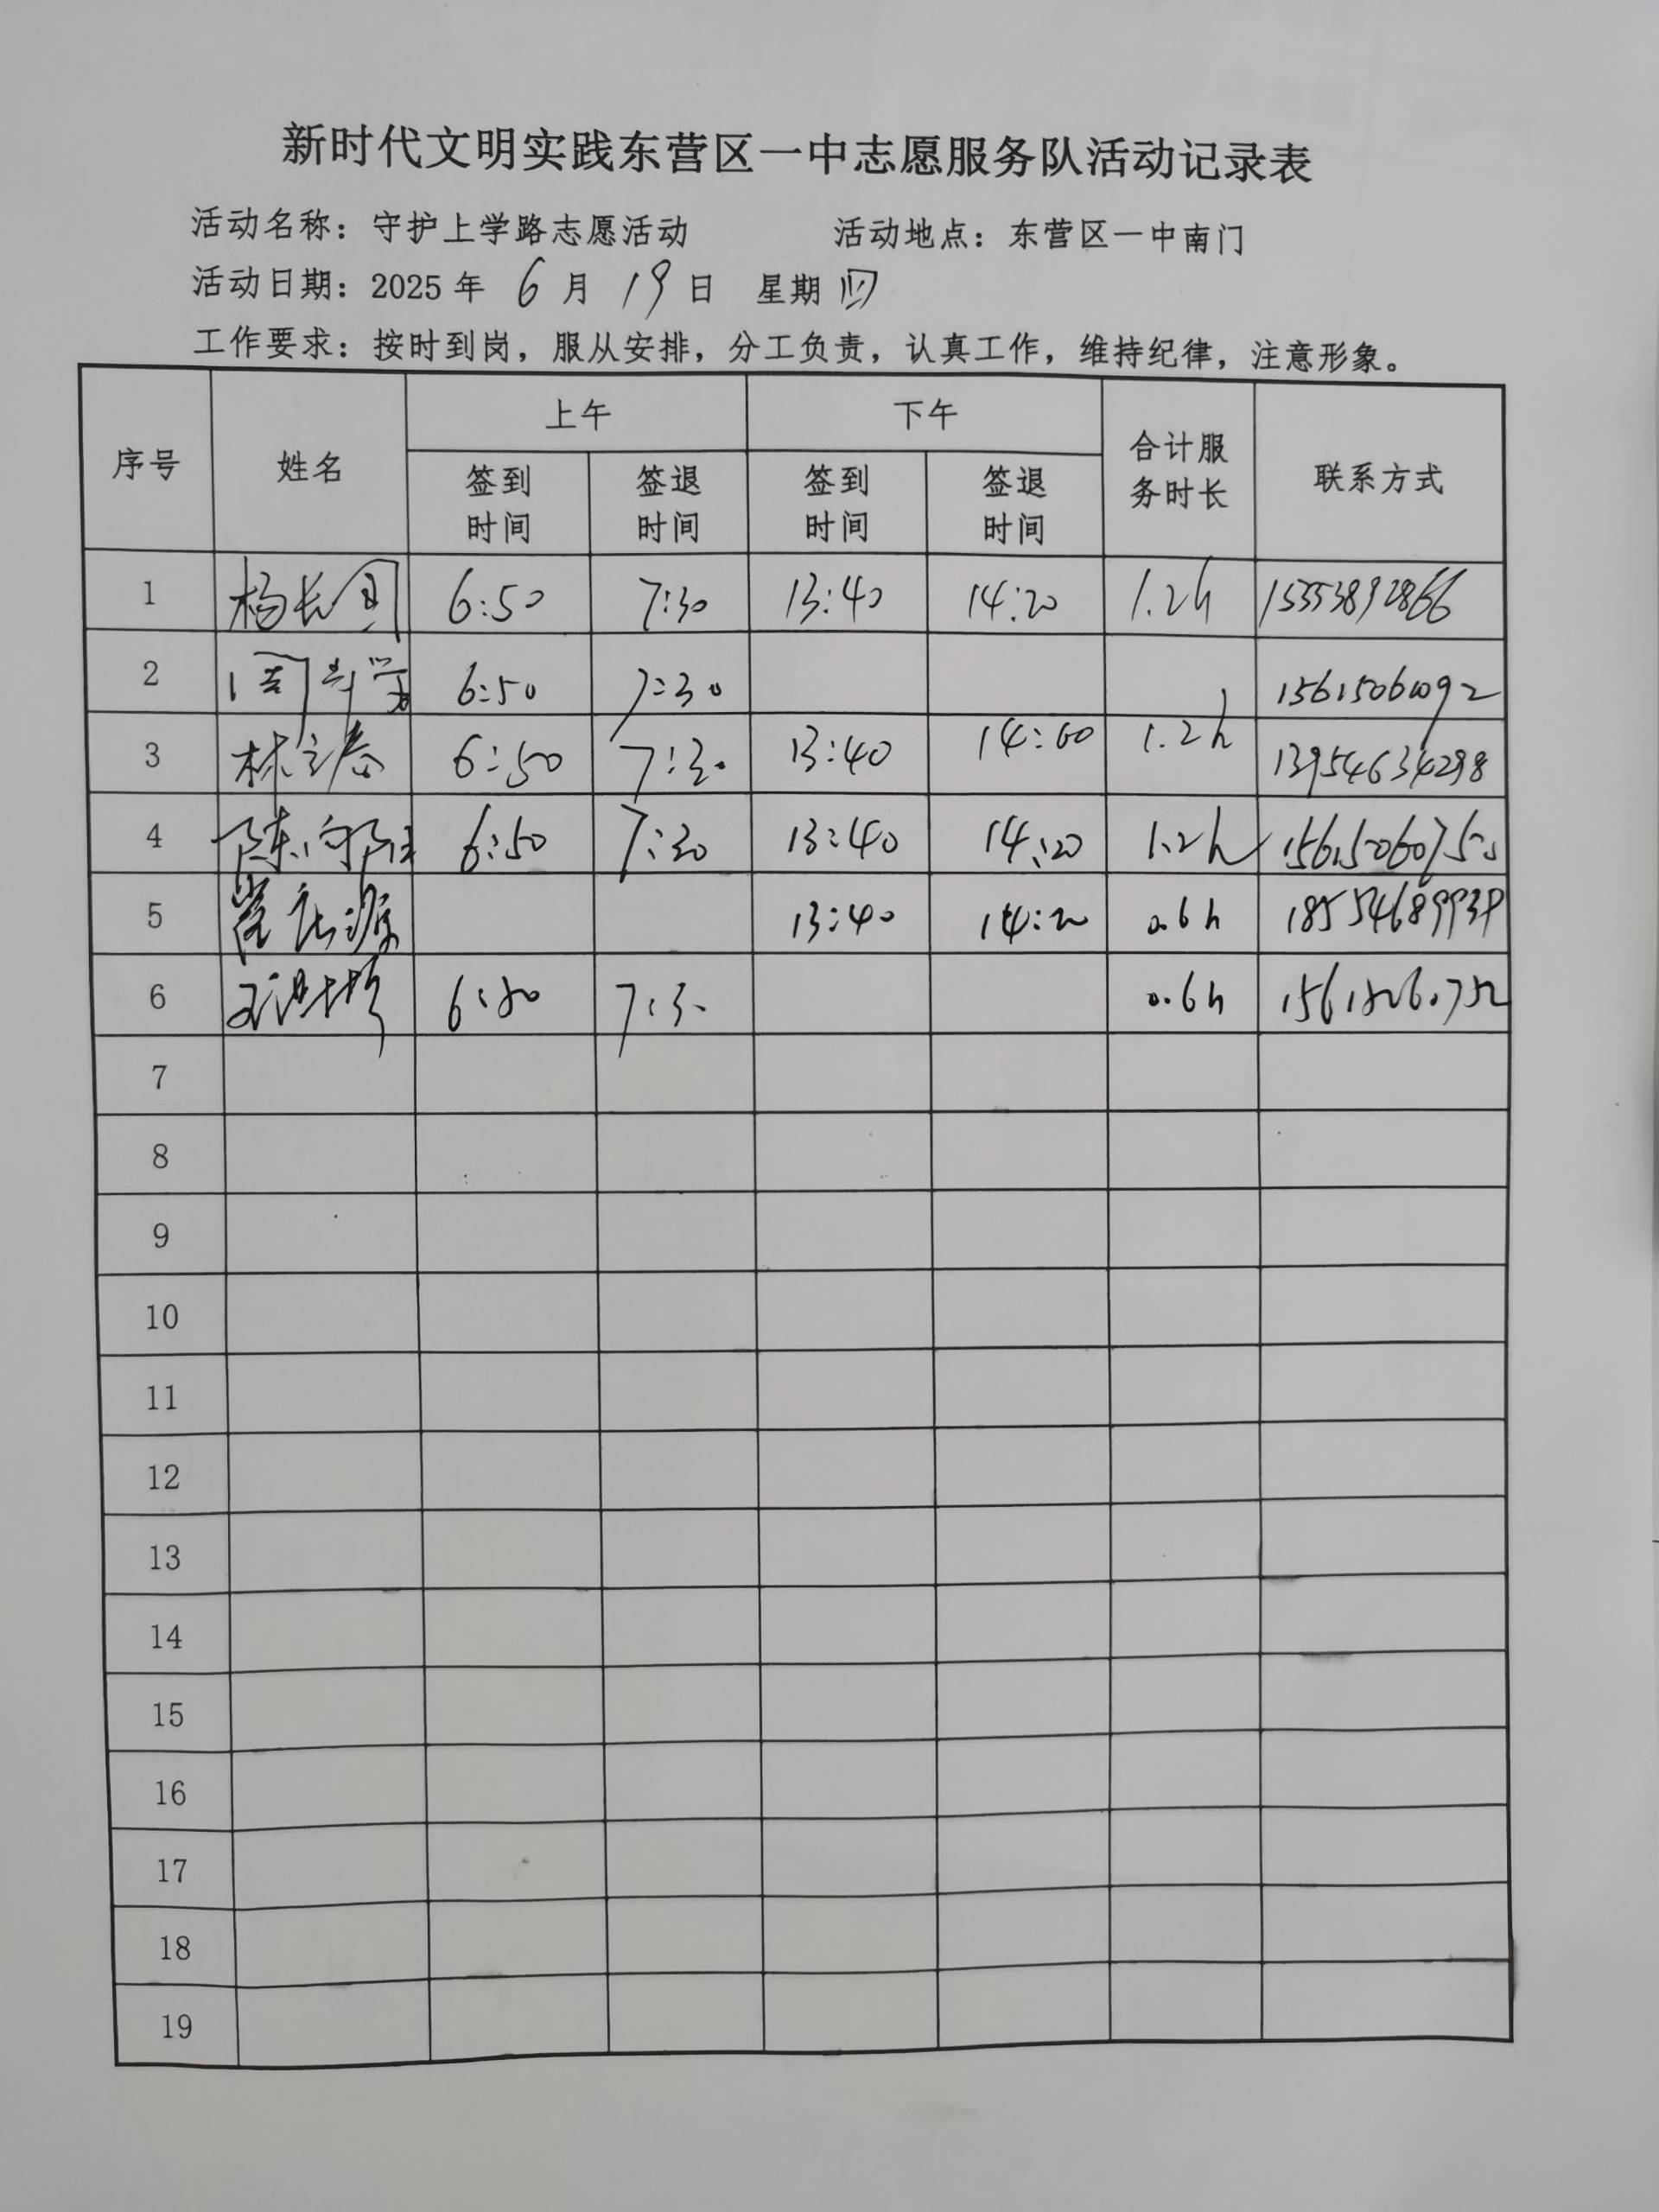 新时代文明实践东营区一中志愿服务队活动记录表
活动名称：守护上学路志愿活动 活动地点：东营区一中南门
活动日期：2025年 6月 19日 星期四
工作要求：按时到岗，服从安排，分工负责，认真工作，维持纪律，注意形象。
序号 姓名 上午 下午 合计服务时长 联系方式
签到时间 签退时间 签到时间 签退时间
1 杨长国 6:50 7:30 13:40 14:20 1.2h
2 6:50 7:30
3 林立春 6:50 7:30 13:40 14:60 1.2h 13954634298
4 陈向阳 6:50 7:30 13:40 14:20 1.2h
5 13:40 14:20 0.6h
6 6:50 7:30 0.6h
7
8
9
10
11
12
13
14
15
16
17
18
19